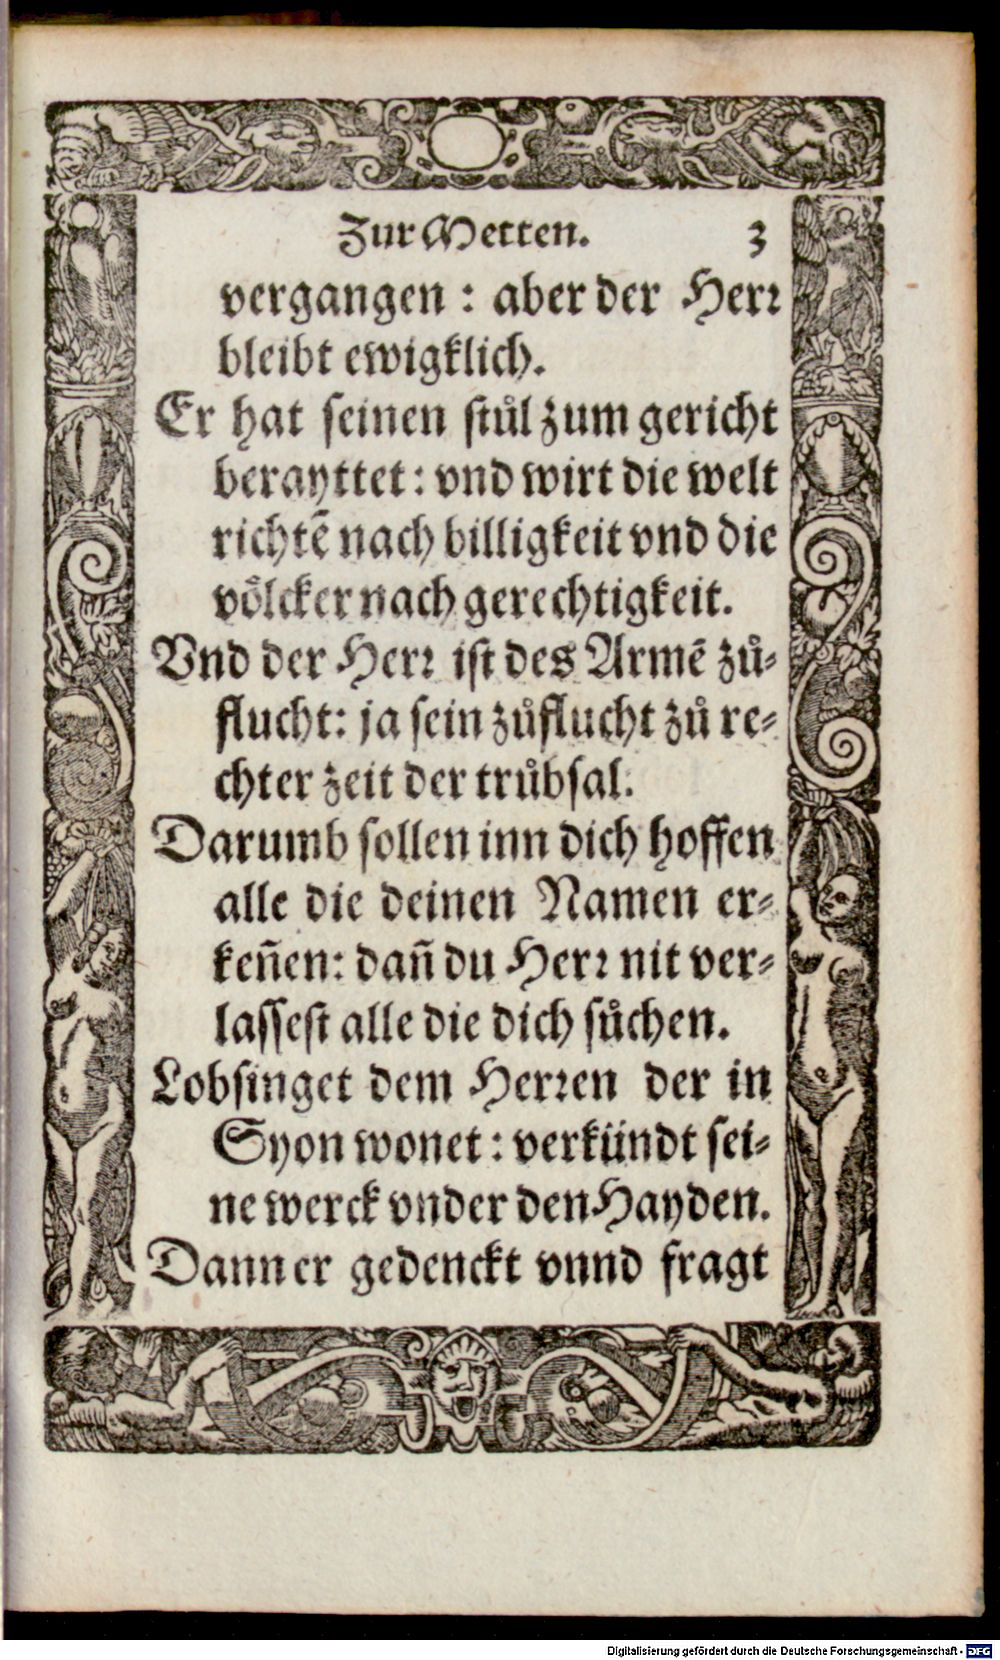 Zur Metten. 3
vergangen : aber der Herꝛ
bleibt ewigklich.
Er hat seinen stůl zum gericht
berayttet : vnd wirt die welt
richtē nach billigkeit vnd die
vo̊lcker nach gerechtigkeit.
Vnd der Herꝛ ist des Armē zů-
flucht: ja sein zůflucht zů re-
chter zeit der trůbsal.
Darumb sollen inn dich hoffen
alle die deinen Namen er-
keñen: dañ du Herꝛ nit ver-
lassest alle die dich sůchen.
Lobsinget dem Herꝛen der in
Syon wonet : verkündt sei-
ne werck vnder den Hayden.
Dann er gedenckt vnnd fragt
Digitalisierung gefördert durch die Deutsche Forschungsgemeinschaft - DFG